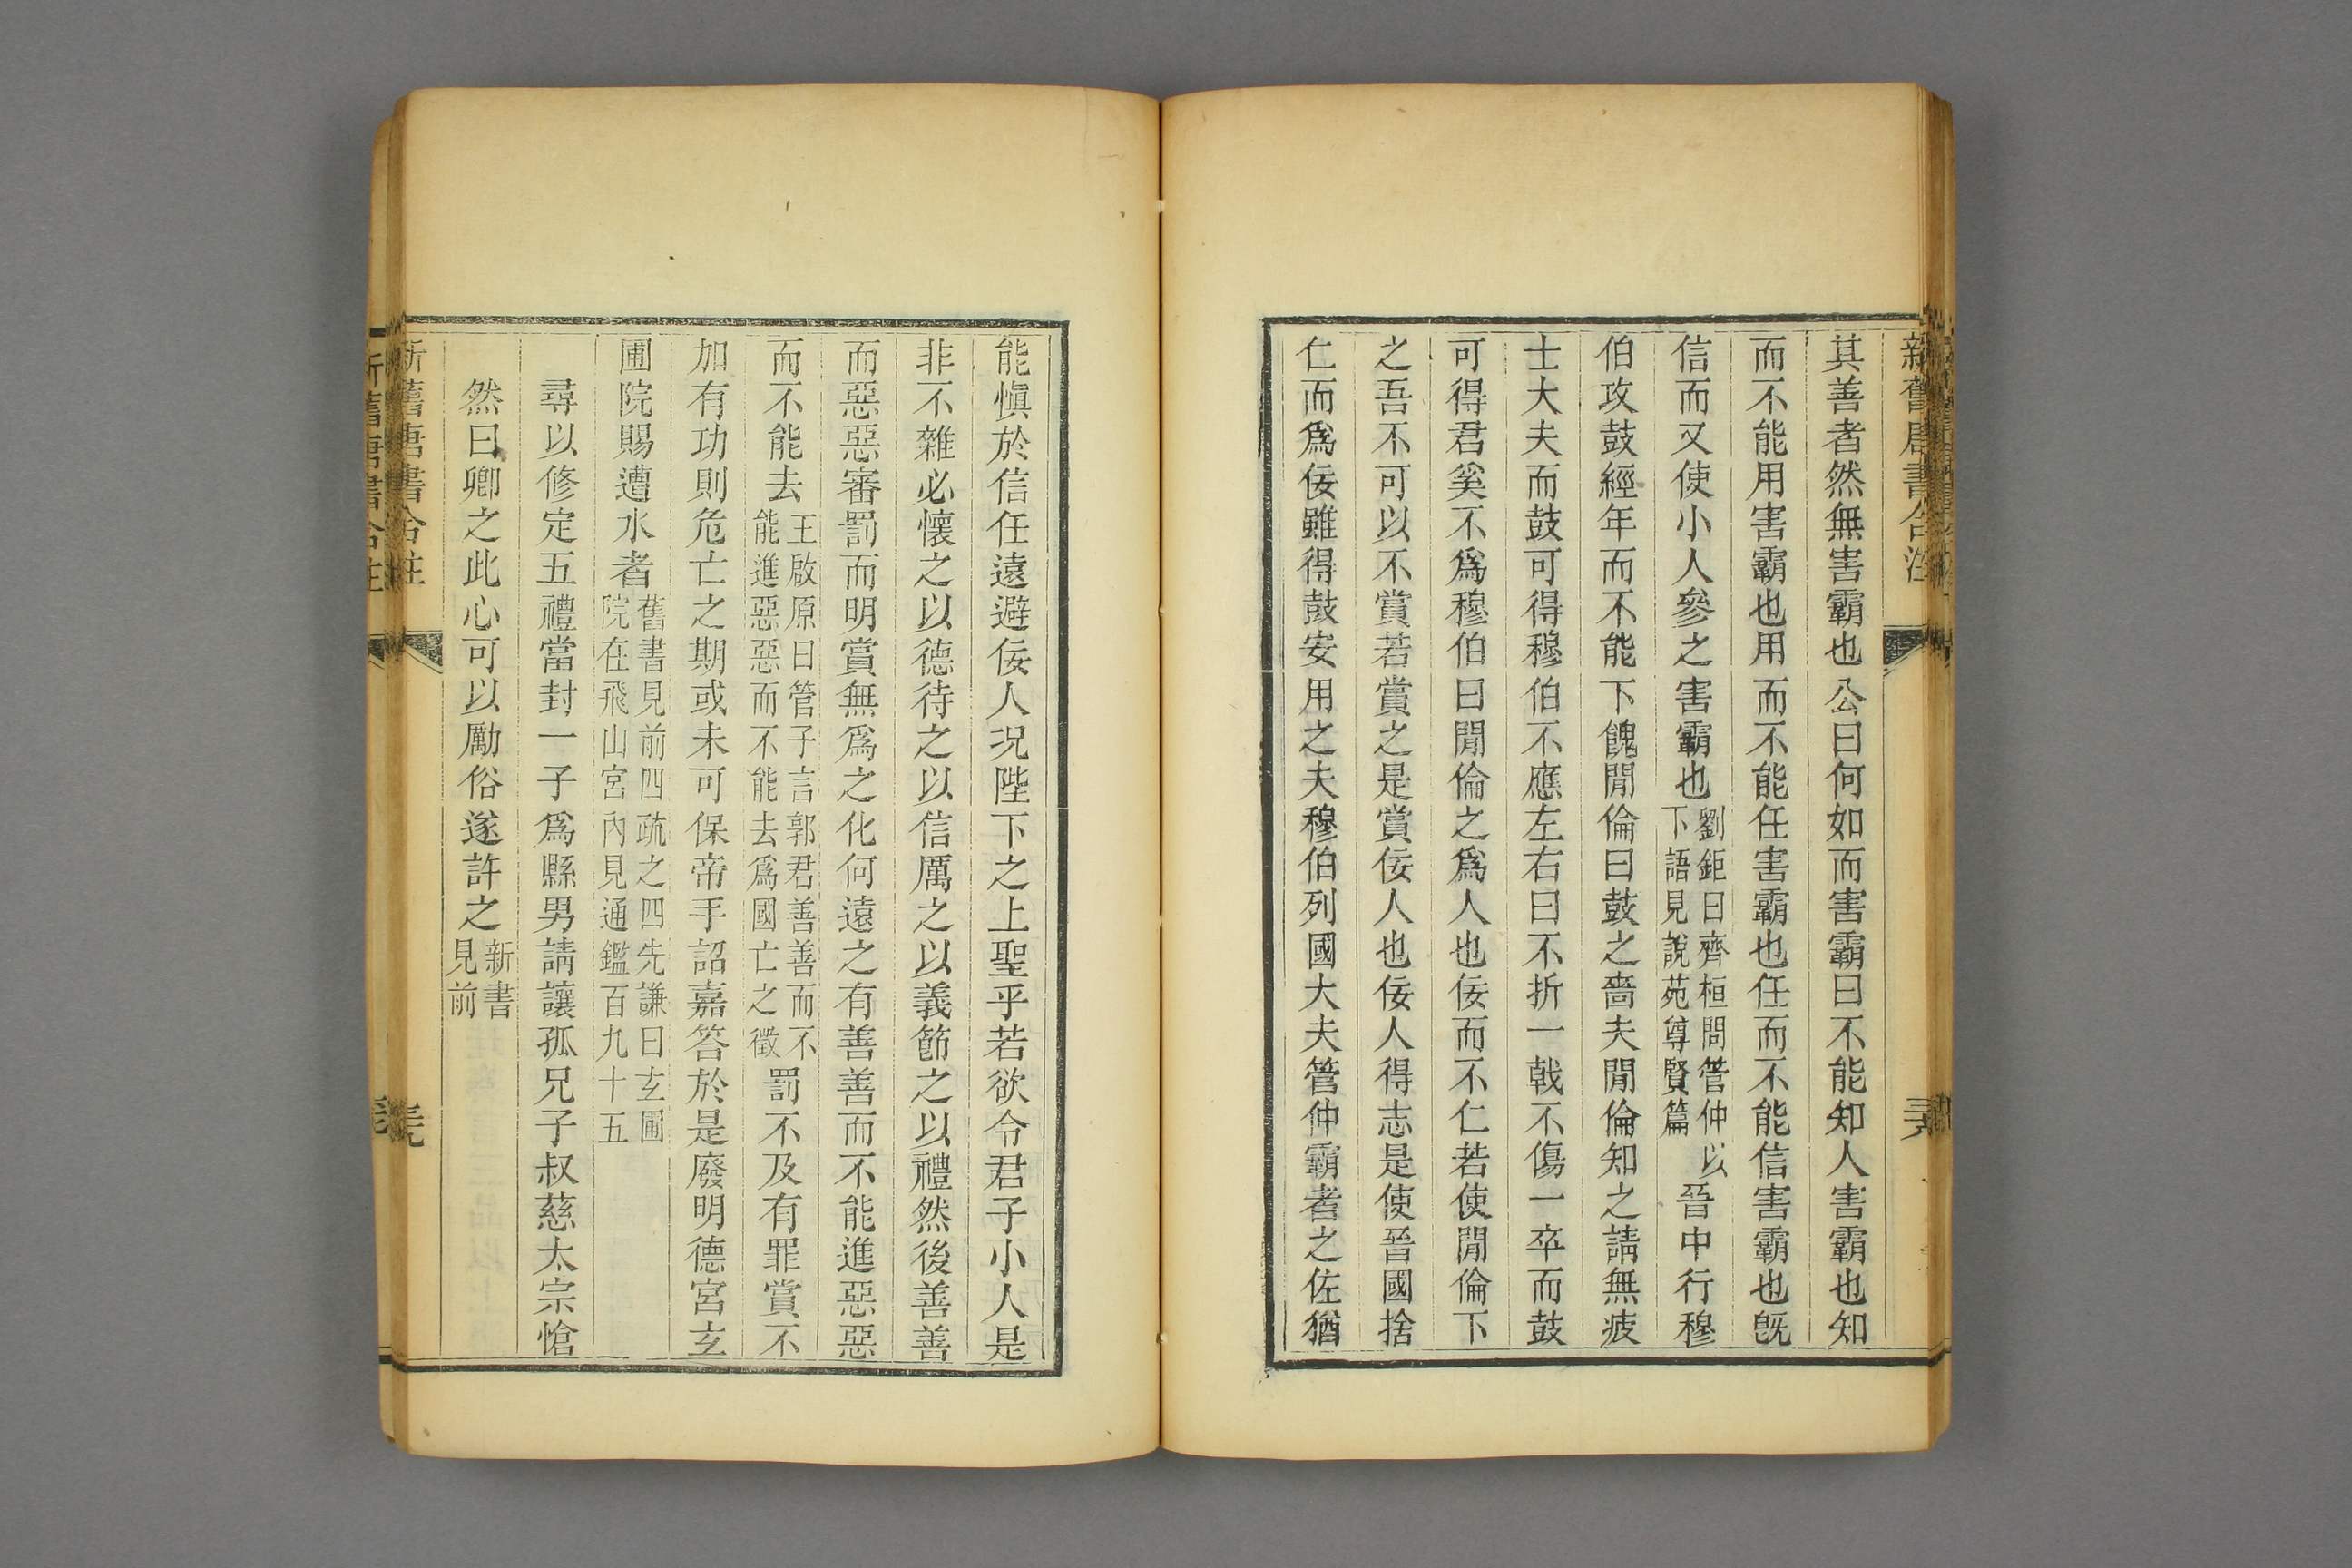 新舊唐書合注
其善者然無害霸也公曰何如而害霸曰不能知人害霸也知
而不能用害霸也用而不能任害霸也任而不能信害霸也旣
信而又使小人參之害霸也劉鉅曰齊桓問管仲以
下語見說苑尊賢篇
晉中行穆
伯攻鼓經年而不能下餽閒倫曰鼓之嗇夫閒倫知之請無疲
士大夫而鼓可得穆伯不應左右曰不折一戟不傷一卒而鼓
可得君奚不爲穆伯曰閒倫之爲人也佞而不仁若使閒倫下
之吾不可以不賞若賞之是賞佞人也佞人得志是使晉國捨
仁而爲佞雖得鼓安用之夫穆伯列國大夫管仲霸者之佐猶
能愼於信任遠避佞人況陛下之上聖乎若欲令君子小人是
非不雜必懷之以德待之以信厲之以義節之以禮然後善善
而惡惡審罰而明賞無爲之化何遠之有善善而不能進惡惡
而不能去王啟原曰管子言郭君善善而不
能進惡惡而不能去爲國亡之徵
罰不及有罪賞不
加有功則危亡之期或未可保帝手詔嘉答於是廢明德宮玄
圃院賜遭水者舊書見前四疏之四先謙曰玄圃
院在飛山宮內見通鑑百九十五
尋以修定五禮當封一子爲縣男請讓孤兄子叔慈太宗愴
然曰卿之此心可以勵俗遂許之新書
見前
新舊唐書合注
新舊唐書合注